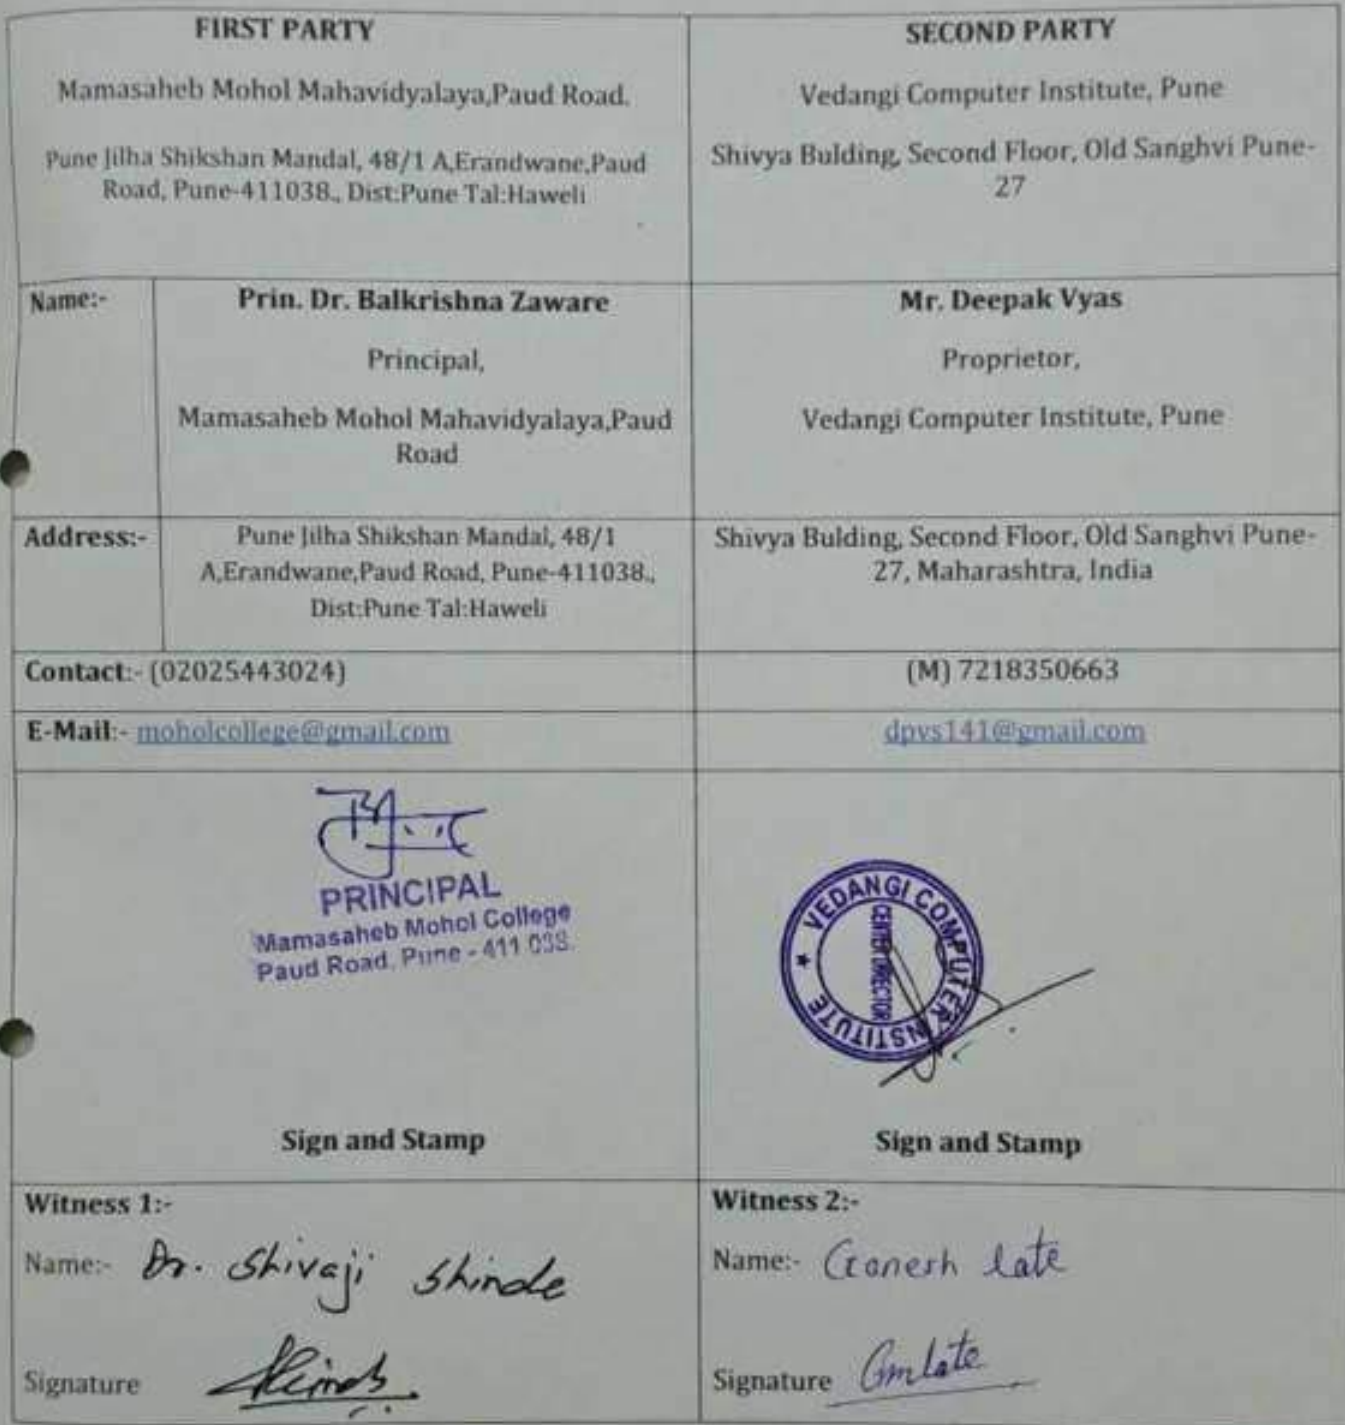 FIRST PARTY
Mamasaheb Mohol Mahavidyalaya,Paud Road.
Pune Jilha Shikshan Mandal, 48/1 A,Erandwane,Paud
Road, Pune-411038., Dist:Pune Tal:Haweli
SECOND PARTY
Vedangi Computer Institute, Pune
Shivya Bulding, Second Floor, Old Sanghvi Pune-
27
Name:-
Prin. Dr. Balkrishna Zaware
Principal,
Mamasaheb Mohol Mahavidyalaya,Paud
Road
Mr. Deepak Vyas
Proprietor,
Vedangi Computer Institute, Pune
Address:-
Pune Jilha Shikshan Mandal, 48/1
A,Erandwane,Paud Road, Pune-411038.,
Dist:Pune Tal:Haweli
Shivya Bulding, Second Floor, Old Sanghvi Pune-
27, Maharashtra, India
Contact:- (02025443024)
(M) 7218350663
E-Mail:- moholcollege@gmail.com
dpvs141@gmail.com
PRINCIPAL
Mamasaheb Mohol College
Paud Road, Pune - 411 038.
Sign and Stamp
VEDANGI COMPUTER INSTITUTE
CENTER DIRECTOR
Sign and Stamp
Witness 1:-
Name:- Dr. Shivaji Shinde
Signature
Witness 2:-
Name:- Ganesh late
Signature Gmlate